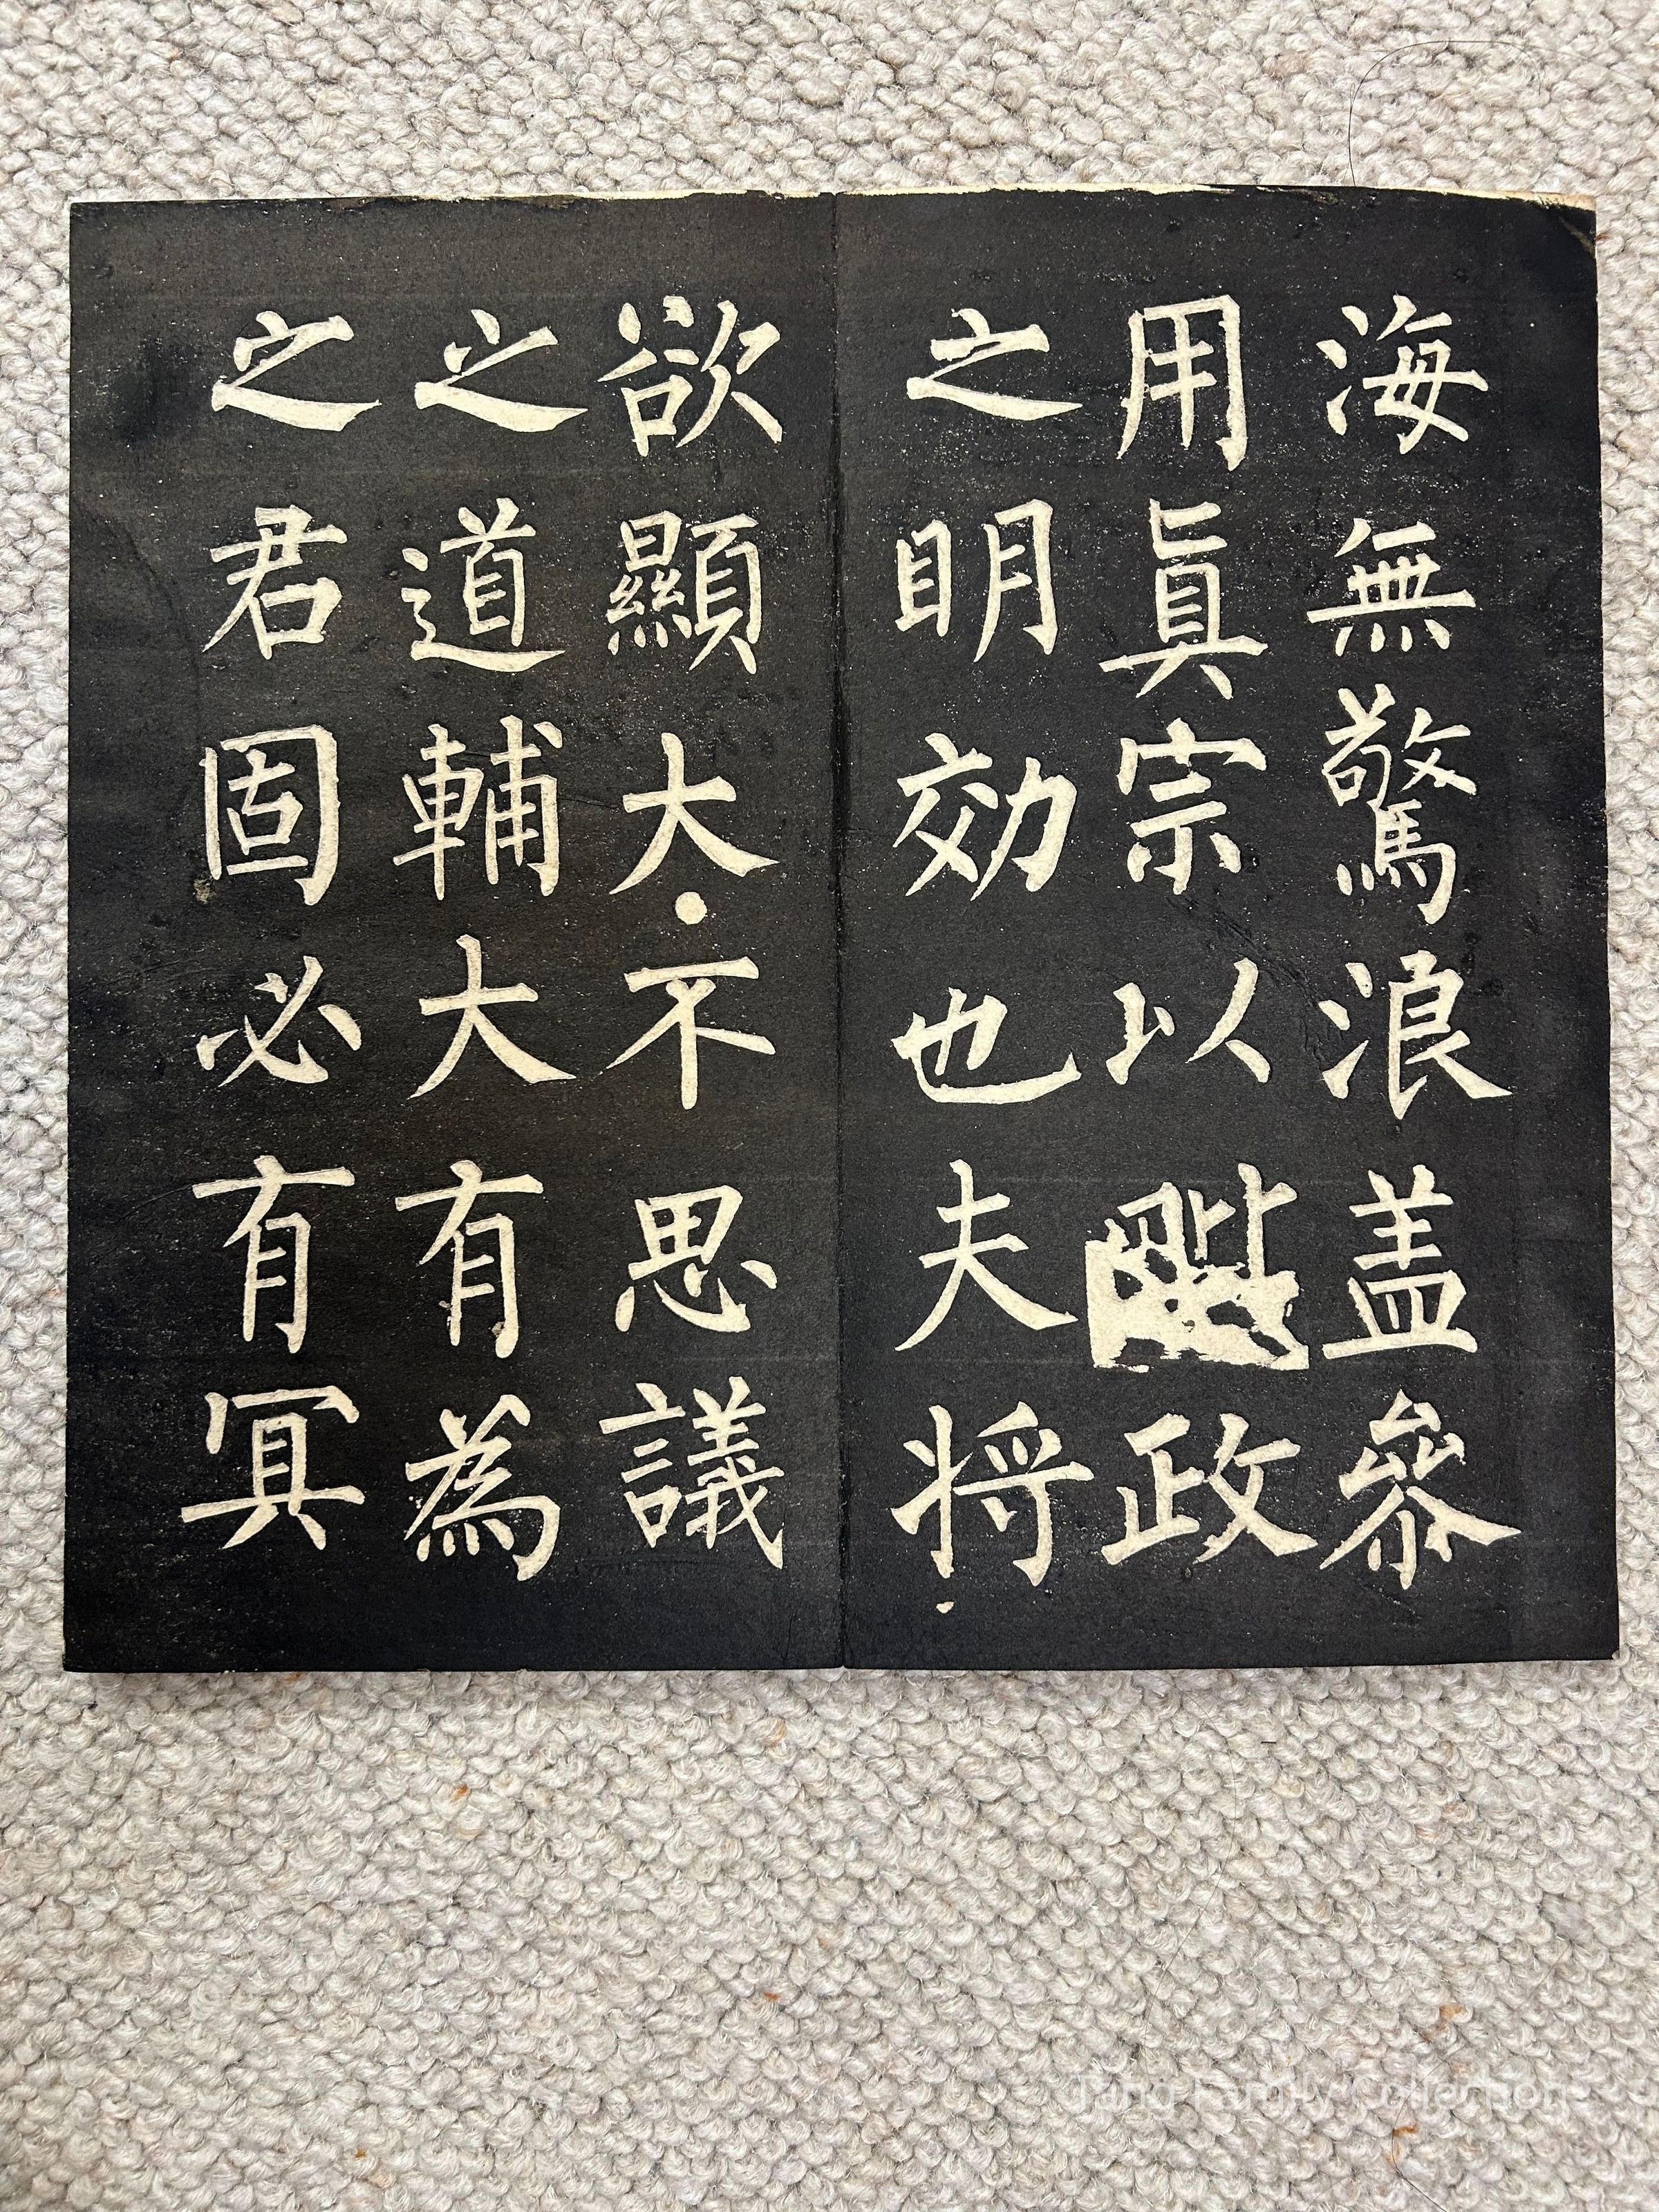 海無驚浪盖叅
用眞宗以毗政
之明効也夫将
欲顯大不思議
之道輔大有為
之君固必有冥
Tang Family Collection